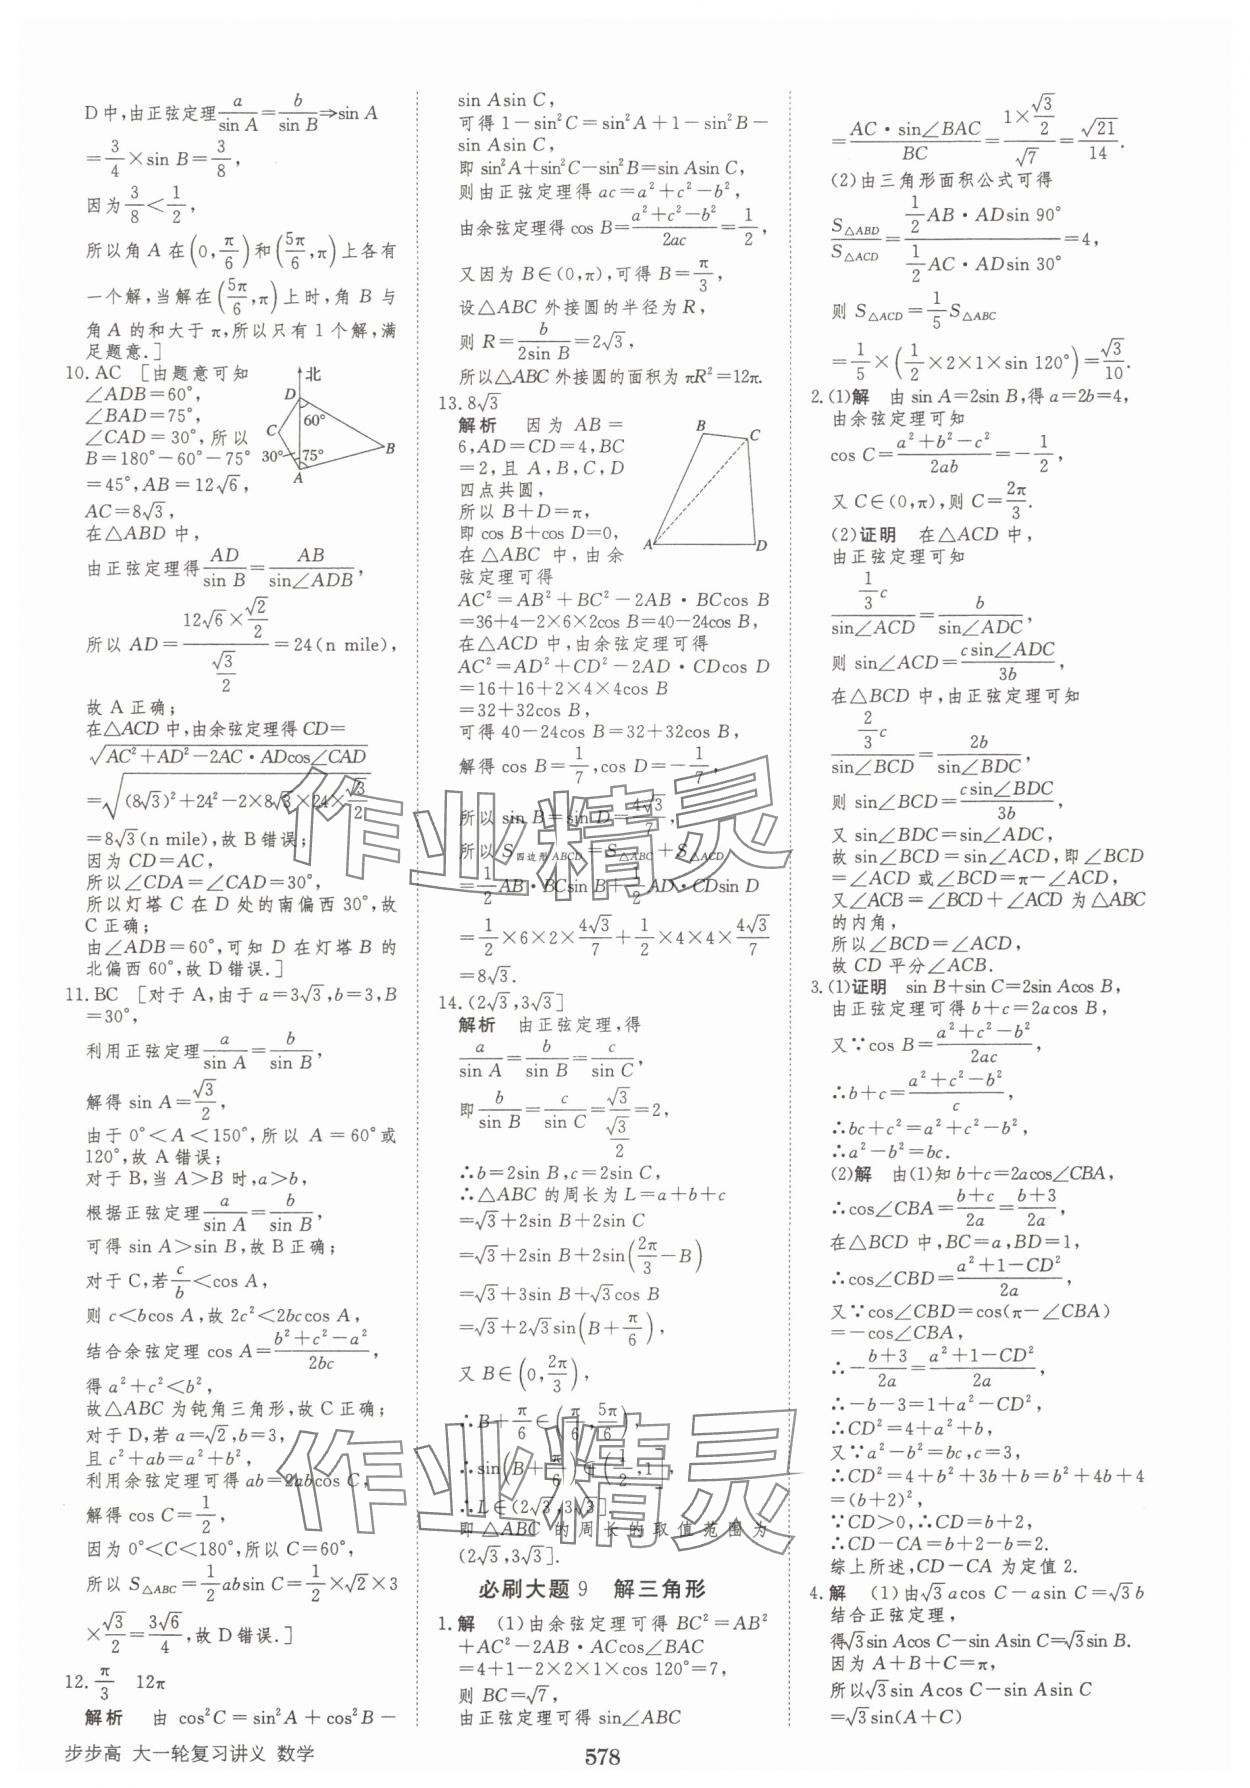 D中,由正弦定理a/sin A=b/sin B⇒sin A
=3/4×sin B=3/8,
因为3/8<1/2,
所以角A在(0,π/6)和(5π/6,π)上各有
一个解,当解在(5π/6,π)上时,角B与
角A的和大于π,所以只有1个解,满
足题意.]
10.AC [由题意可知
∠ADB=60°,
∠BAD=75°,
∠CAD=30°,所以
B=180°-60°-75°
=45°,AB=12√6,
AC=8√3,
北
D
60°
C
B
30°
75°
A
在△ABD中,
由正弦定理得AD/sin B=AB/sin∠ADB,
所以AD=(12√6×√2/2)/(√3/2)=24(n mile),
故A正确;
在△ACD中,由余弦定理得CD=
√(AC²+AD²-2AC·ADcos∠CAD)
=√((8√3)²+24²-2×8√3×24×√3/2)
=8√3(n mile),故B错误;
因为CD=AC,
所以∠CDA=∠CAD=30°,
所以灯塔C在D处的南偏西30°,故
C正确;
由∠ADB=60°,可知D在灯塔B的
北偏西60°,故D错误.]
11.BC [对于A,由于a=3√3,b=3,B
=30°,
利用正弦定理a/sin A=b/sin B,
解得sin A=√3/2,
由于0°<A<150°,所以A=60°或
120°,故A错误;
对于B,当A>B时,a>b,
根据正弦定理a/sin A=b/sin B,
可得sin A>sin B,故B正确;
对于C,若c/b<cos A,
则c<bcos A,故2c²<2bccos A,
结合余弦定理cos A=(b²+c²-a²)/2bc,
得a²+c²<b²,
故△ABC为钝角三角形,故C正确;
对于D,若a=√2,b=3,
且c²+ab=a²+b²,
利用余弦定理可得ab=2abcos C,
解得cos C=1/2,
因为0°<C<180°,所以C=60°,
所以S△ABC=1/2absin C=1/2×√2×3
×√3/2=3√6/4,故D错误.]
12.π/3 12π
解析 由cos²C=sin²A+cos²B-
sin Asin C,
可得1-sin²C=sin²A+1-sin²B-
sin Asin C,
即sin²A+sin²C-sin²B=sin Asin C,
则由正弦定理得ac=a²+c²-b²,
由余弦定理得cos B=(a²+c²-b²)/2ac=1/2,
又因为B∈(0,π),可得B=π/3,
设△ABC外接圆的半径为R,
则R=b/2sin B=2√3,
所以△ABC外接圆的面积为πR²=12π.
13.8√3
解析 因为AB=
6,AD=CD=4,BC
=2,且A,B,C,D
四点共圆,
所以B+D=π,
即cos B+cos D=0,
在△ABC中,由余
弦定理可得
B
C
A
D
AC²=AB²+BC²-2AB·BCcos B
=36+4-2×6×2cos B=40-24cos B,
在△ACD中,由余弦定理可得
AC²=AD²+CD²-2AD·CDcos D
=16+16+2×4×4cos B
=32+32cos B,
可得40-24cos B=32+32cos B,
解得cos B=1/7,cos D=-1/7,
所以sin B=sin D=4√3/7,
所以S四边形ABCD=S△ABC+S△ACD
=1/2AB·BCsin B+1/2AD·CDsin D
=1/2×6×2×4√3/7+1/2×4×4×4√3/7
=8√3.
14.(2√3,3√3]
解析 由正弦定理,得
a/sin A=b/sin B=c/sin C,
即b/sin B=c/sin C=√3/(√3/2)=2,
∴b=2sin B,c=2sin C,
∴△ABC的周长为L=a+b+c
=√3+2sin B+2sin C
=√3+2sin B+2sin(2π/3-B)
=√3+3sin B+√3cos B
=√3+2√3sin(B+π/6),
又B∈(0,2π/3),
∴B+π/6∈(π/6,5π/6),
∴sin(B+π/6)∈(1/2,1],
∴L∈(2√3,3√3],
即△ABC的周长的取值范围为
(2√3,3√3].
必刷大题9 解三角形
1.解 (1)由余弦定理可得BC²=AB²
+AC²-2AB·ACcos∠BAC
=4+1-2×2×1×cos 120°=7,
则BC=√7,
由正弦定理可得sin∠ABC
=AC·sin∠BAC/BC=(1×√3/2)/√7=√21/14.
(2)由三角形面积公式可得
S△ABD/S△ACD=(1/2AB·ADsin 90°)/(1/2AC·ADsin 30°)=4,
则S△ACD=1/5S△ABC
=1/5×(1/2×2×1×sin 120°)=√3/10.
2.(1)解 由sin A=2sin B,得a=2b=4,
由余弦定理可知
cos C=(a²+b²-c²)/2ab=-1/2,
又C∈(0,π),则C=2π/3.
(2)证明 在△ACD中,
由正弦定理可知
(1/3c)/sin∠ACD=b/sin∠ADC,
则sin∠ACD=csin∠ADC/3b,
在△BCD中,由正弦定理可知
(2/3c)/sin∠BCD=2b/sin∠BDC,
则sin∠BCD=csin∠BDC/3b,
又sin∠BDC=sin∠ADC,
故sin∠BCD=sin∠ACD,即∠BCD
=∠ACD或∠BCD=π-∠ACD,
又∠ACB=∠BCD+∠ACD为△ABC
的内角,
所以∠BCD=∠ACD,
故CD平分∠ACB.
3.(1)证明 sin B+sin C=2sin Acos B,
由正弦定理可得b+c=2acos B,
又∵cos B=(a²+c²-b²)/2ac,
∴b+c=(a²+c²-b²)/c,
∴bc+c²=a²+c²-b²,
∴a²-b²=bc.
(2)解 由(1)知b+c=2acos∠CBA,
∴cos∠CBA=(b+c)/2a=(b+3)/2a,
在△BCD中,BC=a,BD=1,
∴cos∠CBD=(a²+1-CD²)/2a,
又∵cos∠CBD=cos(π-∠CBA)
=-cos∠CBA,
∴-(b+3)/2a=(a²+1-CD²)/2a,
∴-b-3=1+a²-CD²,
∴CD²=4+a²+b,
又∵a²-b²=bc,c=3,
∴CD²=4+b²+3b+b=b²+4b+4
=(b+2)²,
∵CD>0,∴CD=b+2,
∴CD-CA=b+2-b=2.
综上所述,CD-CA为定值2.
4.解 (1)由√3acos C-asin C=√3b
结合正弦定理,
得√3sin Acos C-sin Asin C=√3sin B.
因为A+B+C=π,
所以√3sin Acos C-sin Asin C
=√3sin(A+C)
作业精灵
作业精灵
步步高 大一轮复习讲义 数学
578